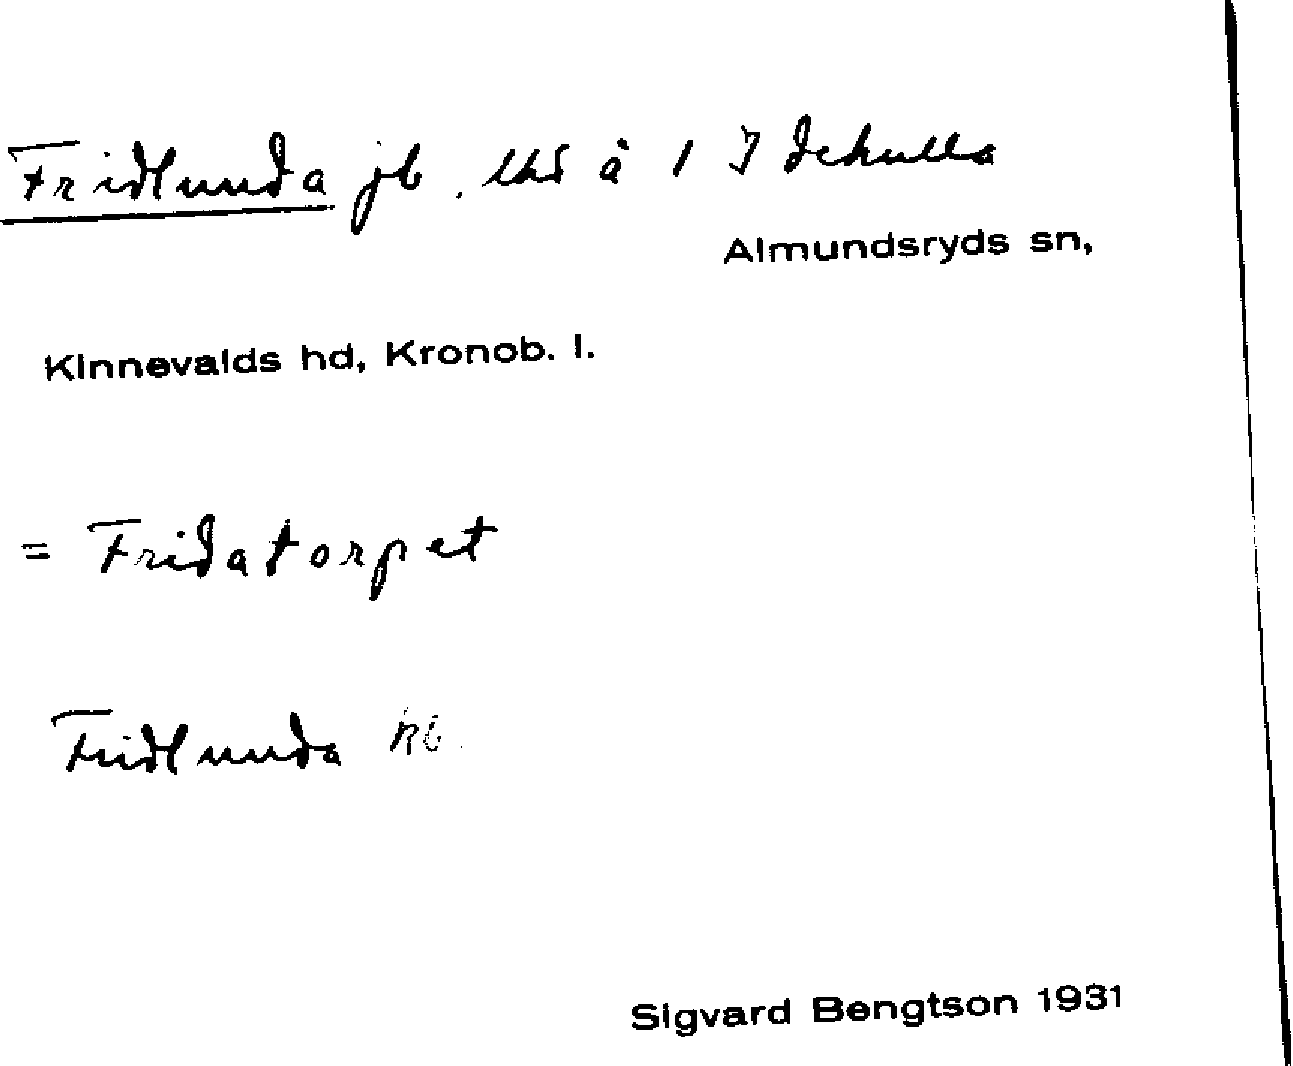 Fridlunda jb. lhs å 1 Idekulla
Almundsryds sn,
Kinnevalds hd, Kronob. l.
= Fridatorpet
Fridlunda kb.
Sigvard Bengtson 1931